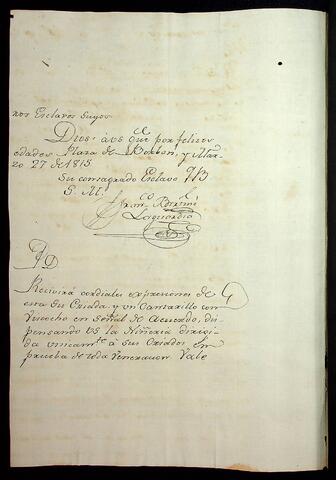 nor Esclavos Suyos
Dios à vs. gue. por felices
edades. Plaza de Borbon, y Mar
zo 27 de 1815.
Su consagrado Esclavo
S. M.
Franco.
Laguardia
P D
Recivirá cordiales expresiones de
esta su Criada y un Cantarillo con
Viscocho en Señal de Acuerdo, dis
pensando vs la Niñeria dirigi
da unicamte. à sus Criados En
prueba de toda Veneracion Vale